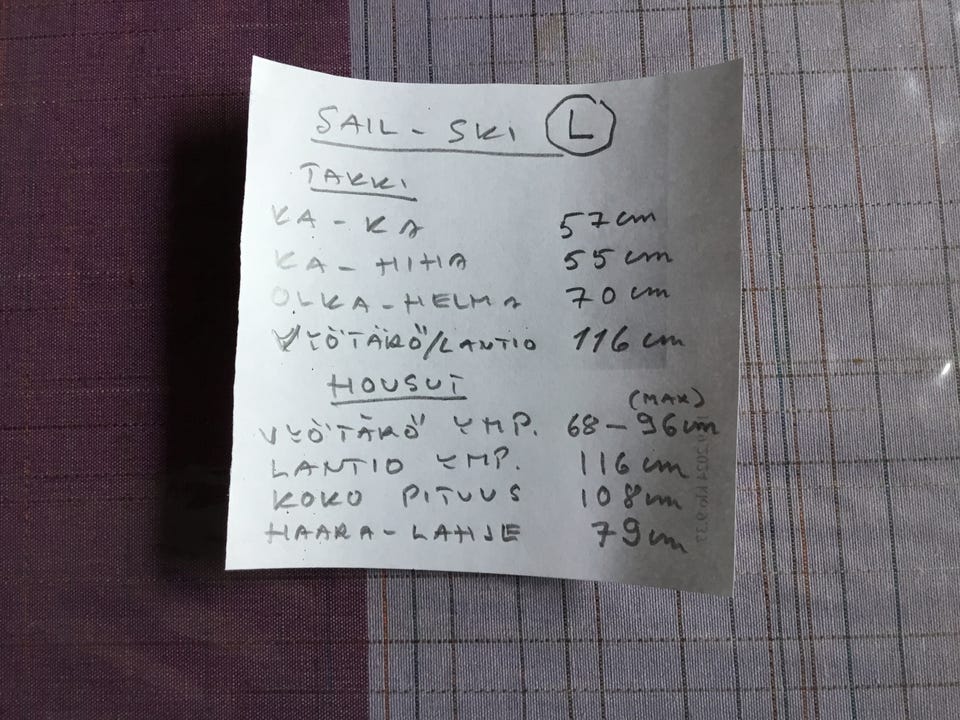 SAIL-SKI L
TAKKI
KA-KA 57cm
KA-HIHA 55cm
OLKA-HELMA 70cm
VYÖTÄRÖ/LANTIO 116cm
HOUSUT
(MAX)
VYÖTÄRÖ YMP. 68-96cm
LANTIO YMP. 116cm
KOKO PITUUS 108cm
HAARA-LAHJE 79cm